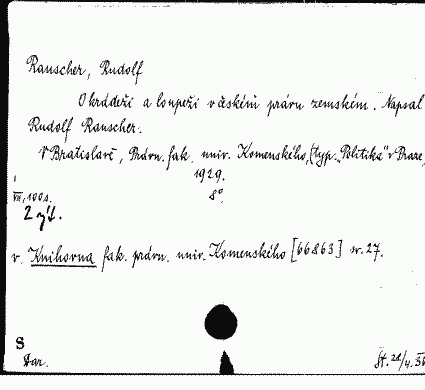 Rauscher, Rudolf
O krádeži a loupeži v českém právu zemském. Napsal
Rudolf Rauscher.
V Bratislavě, Právn. fak. univ. Komenského, (typ. „Politika" v Praze,
1929.
VII, 100 s. 8°.
v. Knihovna fak. právn. univ. Komenského [66863] sv. 27.
S
Dar.